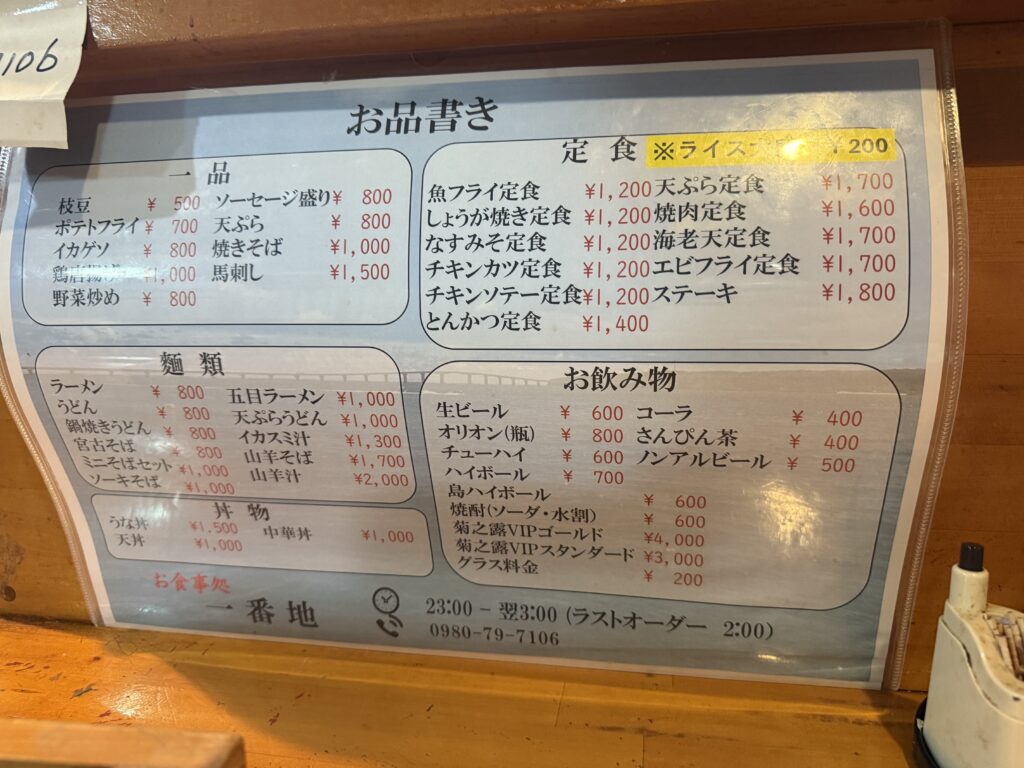 106
お品書き
一品
枝豆 ¥ 500
ポテトフライ ¥ 700
イカゲソ ¥ 800
鶏唐揚げ ¥1,000
野菜炒め ¥ 800
ソーセージ盛り ¥ 800
天ぷら ¥ 800
焼きそば ¥1,000
馬刺し ¥1,500
定食 ※ライス ¥200
魚フライ定食 ¥1,200
しょうが焼き定食 ¥1,200
なすみそ定食 ¥1,200
チキンカツ定食 ¥1,200
チキンソテー定食 ¥1,200
とんかつ定食 ¥1,400
天ぷら定食 ¥1,700
焼肉定食 ¥1,600
海老天定食 ¥1,700
エビフライ定食 ¥1,700
ステーキ ¥1,800
麺類
ラーメン ¥ 800
うどん ¥ 800
鍋焼きうどん ¥ 800
宮古そば ¥ 800
ミニそばセット ¥1,000
ソーキそば ¥1,000
五目ラーメン ¥1,000
天ぷらうどん ¥1,000
イカスミ汁 ¥1,300
山羊そば ¥1,700
山羊汁 ¥2,000
丼物
うな丼 ¥1,500
天丼 ¥1,000
中華丼 ¥1,000
お飲み物
生ビール ¥ 600
オリオン(瓶) ¥ 800
チューハイ ¥ 600
ハイボール ¥ 700
島ハイボール ¥ 600
焼酎(ソーダ・水割) ¥ 600
菊之露VIPゴールド ¥4,000
菊之露VIPスタンダード ¥3,000
グラス料金 ¥ 200
コーラ ¥ 400
さんぴん茶 ¥ 400
ノンアルビール ¥ 500
お食事処
一番地
23:00 − 翌3:00 (ラストオーダー 2:00)
0980-79-7106